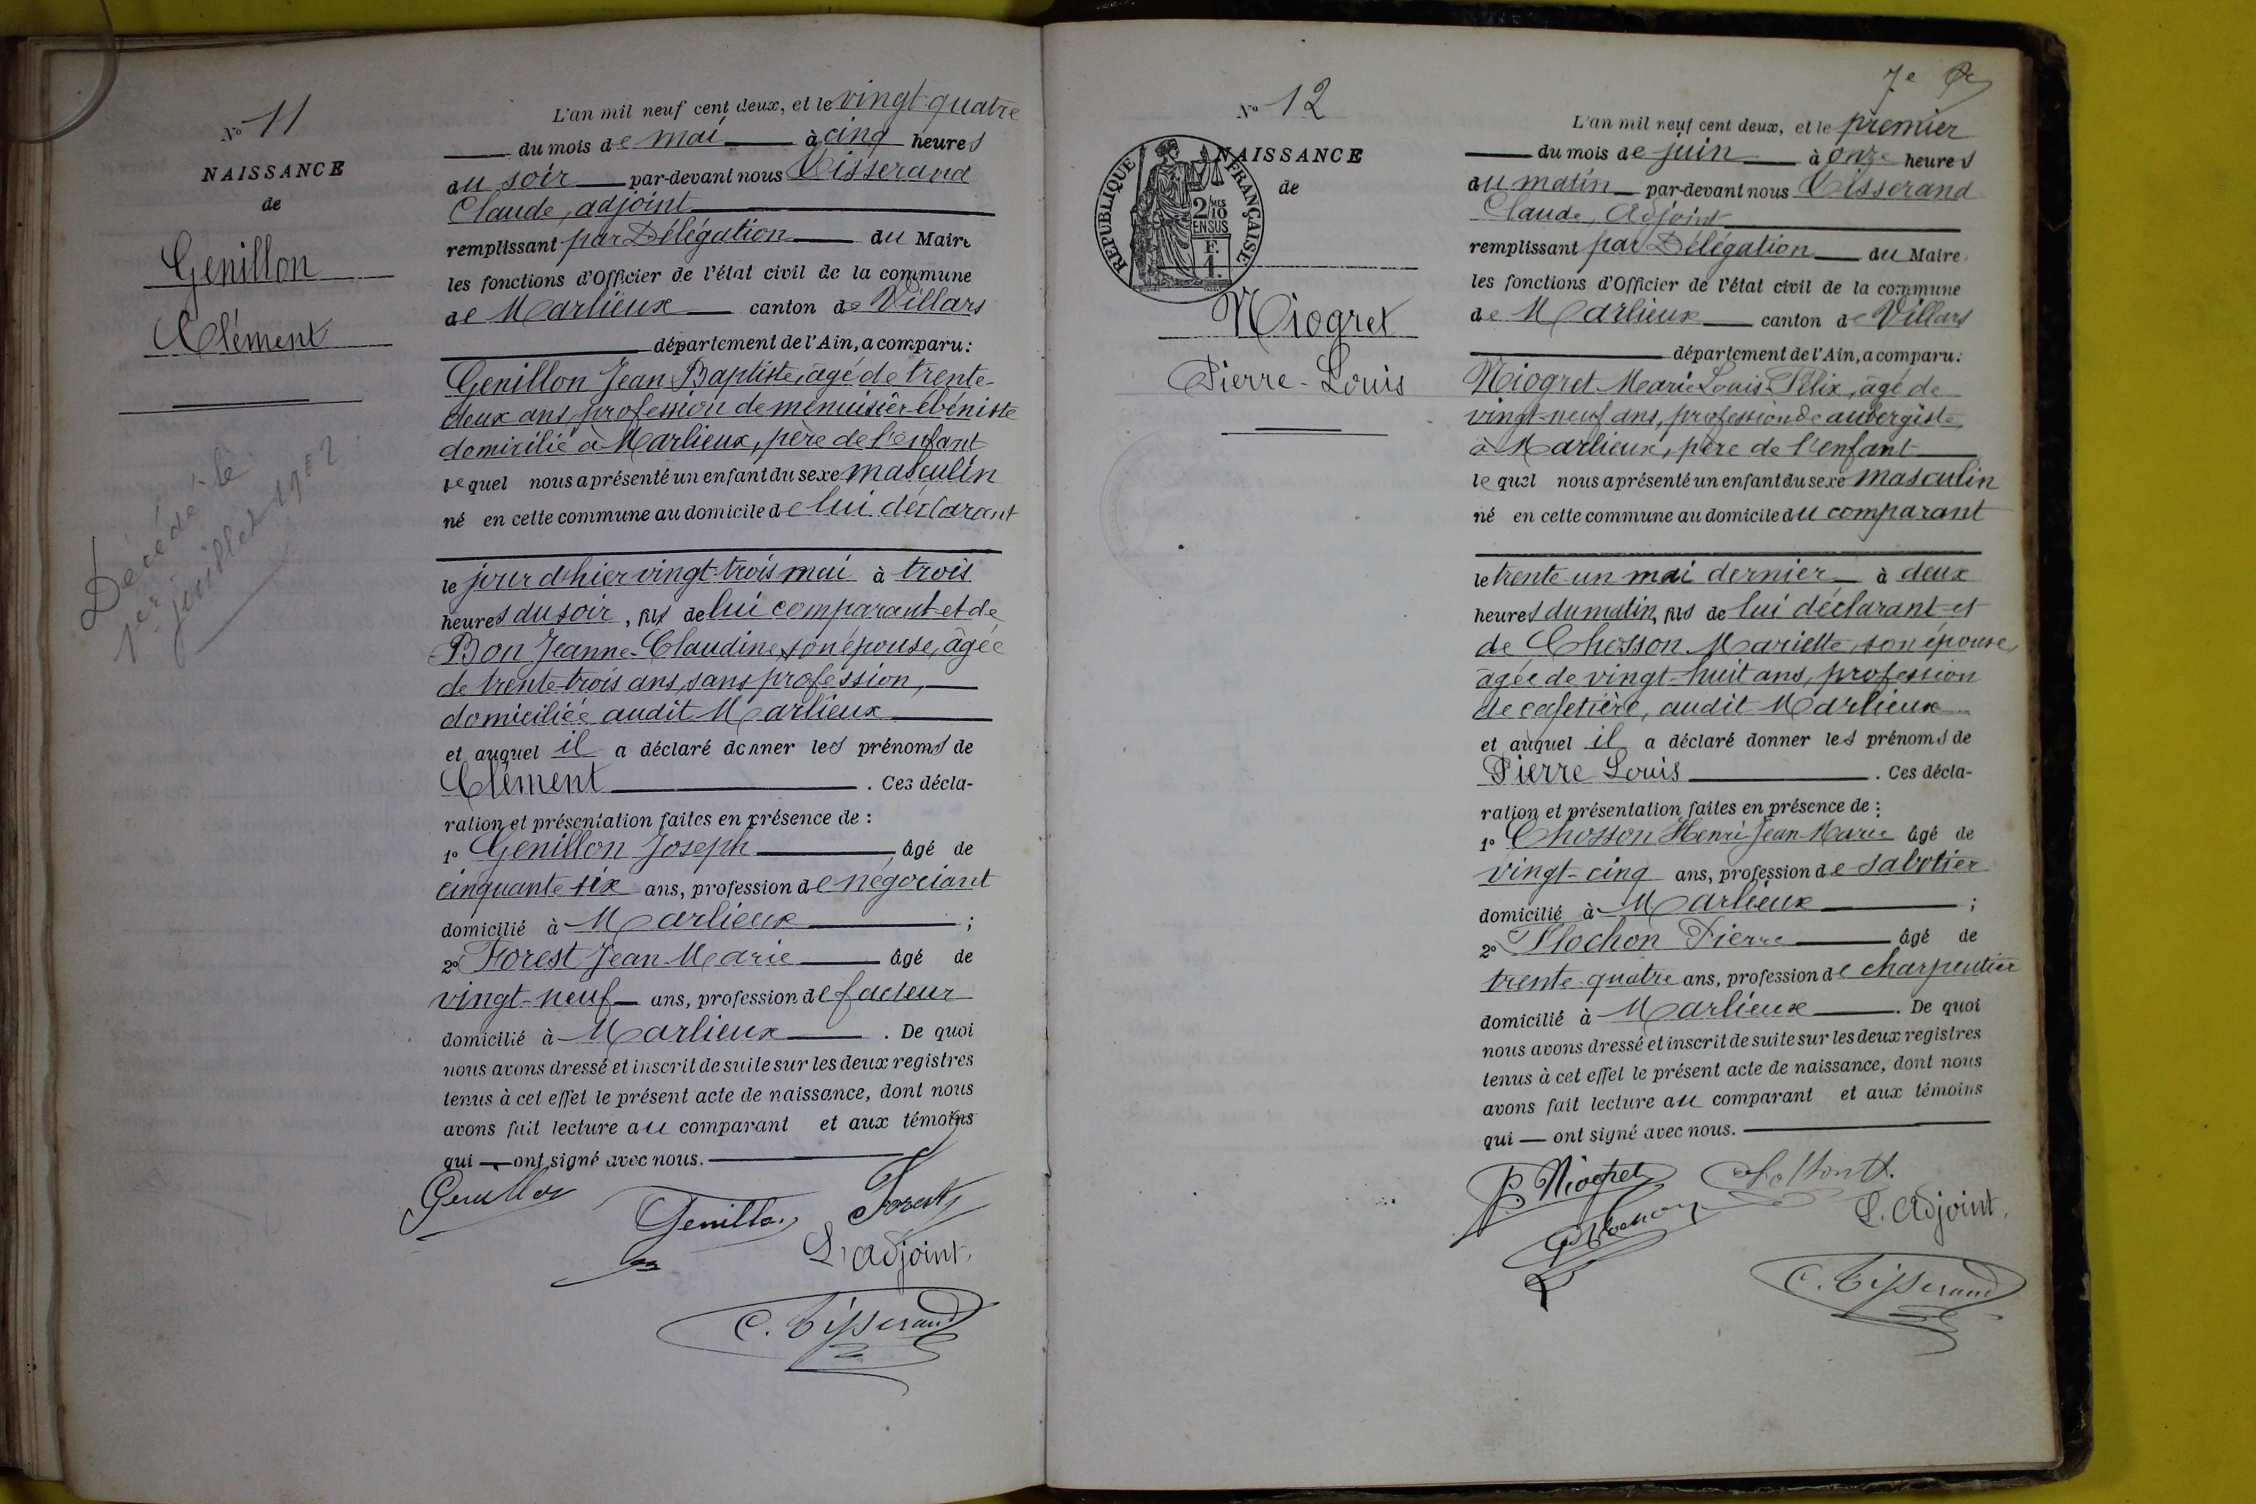 Nº 11
NAISSANCE
de
Genillon
Clément
Décédé le
1er juillet 1902
L'an mil neuf cent deux, et le vingt-quatre
du mois de mai à cinq heures
du soir par-devant nous Tisserand
Claude, adjoint
remplissant par Délégation du Maire
les fonctions d'Officier de l'état civil de la commune
de Marlieux canton de Villars
département de l'Ain, a comparu:
Genillon Jean Baptiste, âgé de trente-
deux ans, profession de menuisier-ébéniste
domicilié à Marlieux, père de l'enfant
lequel nous a présenté un enfant du sexe masculin
né en cette commune au domicile de lui déclarant
le jour d'hier vingt-trois mai à trois
heures du soir, fils de lui comparant et de
Bon Jeanne-Claudine, son épouse, âgée
de trente-trois ans, sans profession,
domiciliée audit Marlieux
et auquel il a déclaré donner les prénoms de
Clément . Ces décla-
ration et présentation faites en présence de :
1º Genillon Joseph âgé de
cinquante six ans, profession de négociant
domicilié à Marlieux ;
2º Forest Jean-Marie âgé de
vingt-neuf ans, profession de facteur
domicilié à Marlieux . De quoi
nous avons dressé et inscrit de suite sur les deux registres
tenus à cet effet le présent acte de naissance, dont nous
avons fait lecture au comparant et aux témoins
qui ont signé avec nous.
Genillon
Genillon
Forest
L'adjoint,
C. Tisserand
7e
Nº 12
NAISSANCE
de
RÉPUBLIQUE FRANÇAISE
2/10 MES
EN SUS
F.
1.
Niogret
Pierre-Louis
L'an mil neuf cent deux, et le premier
du mois de juin à onze heures
du matin par-devant nous Tisserand
Claude, Adjoint
remplissant par Délégation du Maire
les fonctions d'Officier de l'état civil de la commune
de Marlieux canton de Villars
département de l'Ain, a comparu:
Niogret Marie Louis Félix, âgé de
vingt-neuf ans, profession de aubergiste,
à Marlieux, père de l'enfant
lequel nous a présenté un enfant du sexe masculin
né en cette commune au domicile du comparant
le trente-un mai dernier à deux
heures du matin, fils de lui déclarant et
de Chosson Mariette, son épouse,
âgée de vingt-huit ans, profession
de cafetière, audit Marlieux
et auquel il a déclaré donner les prénoms de
Pierre Louis . Ces décla-
ration et présentation faites en présence de :
1º Chosson Henri Jean-Marie âgé de
vingt-cinq ans, profession de sabotier
domicilié à Marlieux ;
2º Flochon Pierre âgé de
trente-quatre ans, profession de charpentier
domicilié à Marlieux . De quoi
nous avons dressé et inscrit de suite sur les deux registres
tenus à cet effet le présent acte de naissance, dont nous
avons fait lecture au comparant et aux témoins
qui ont signé avec nous.
Niogret
Chosson H.
Flochon
L'Adjoint,
C. Tisserand